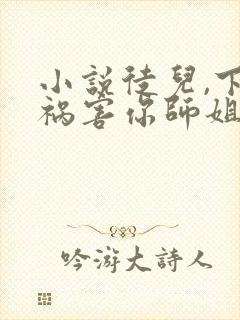 小説徒兒,下
祸害你師姐
吟游大詩人